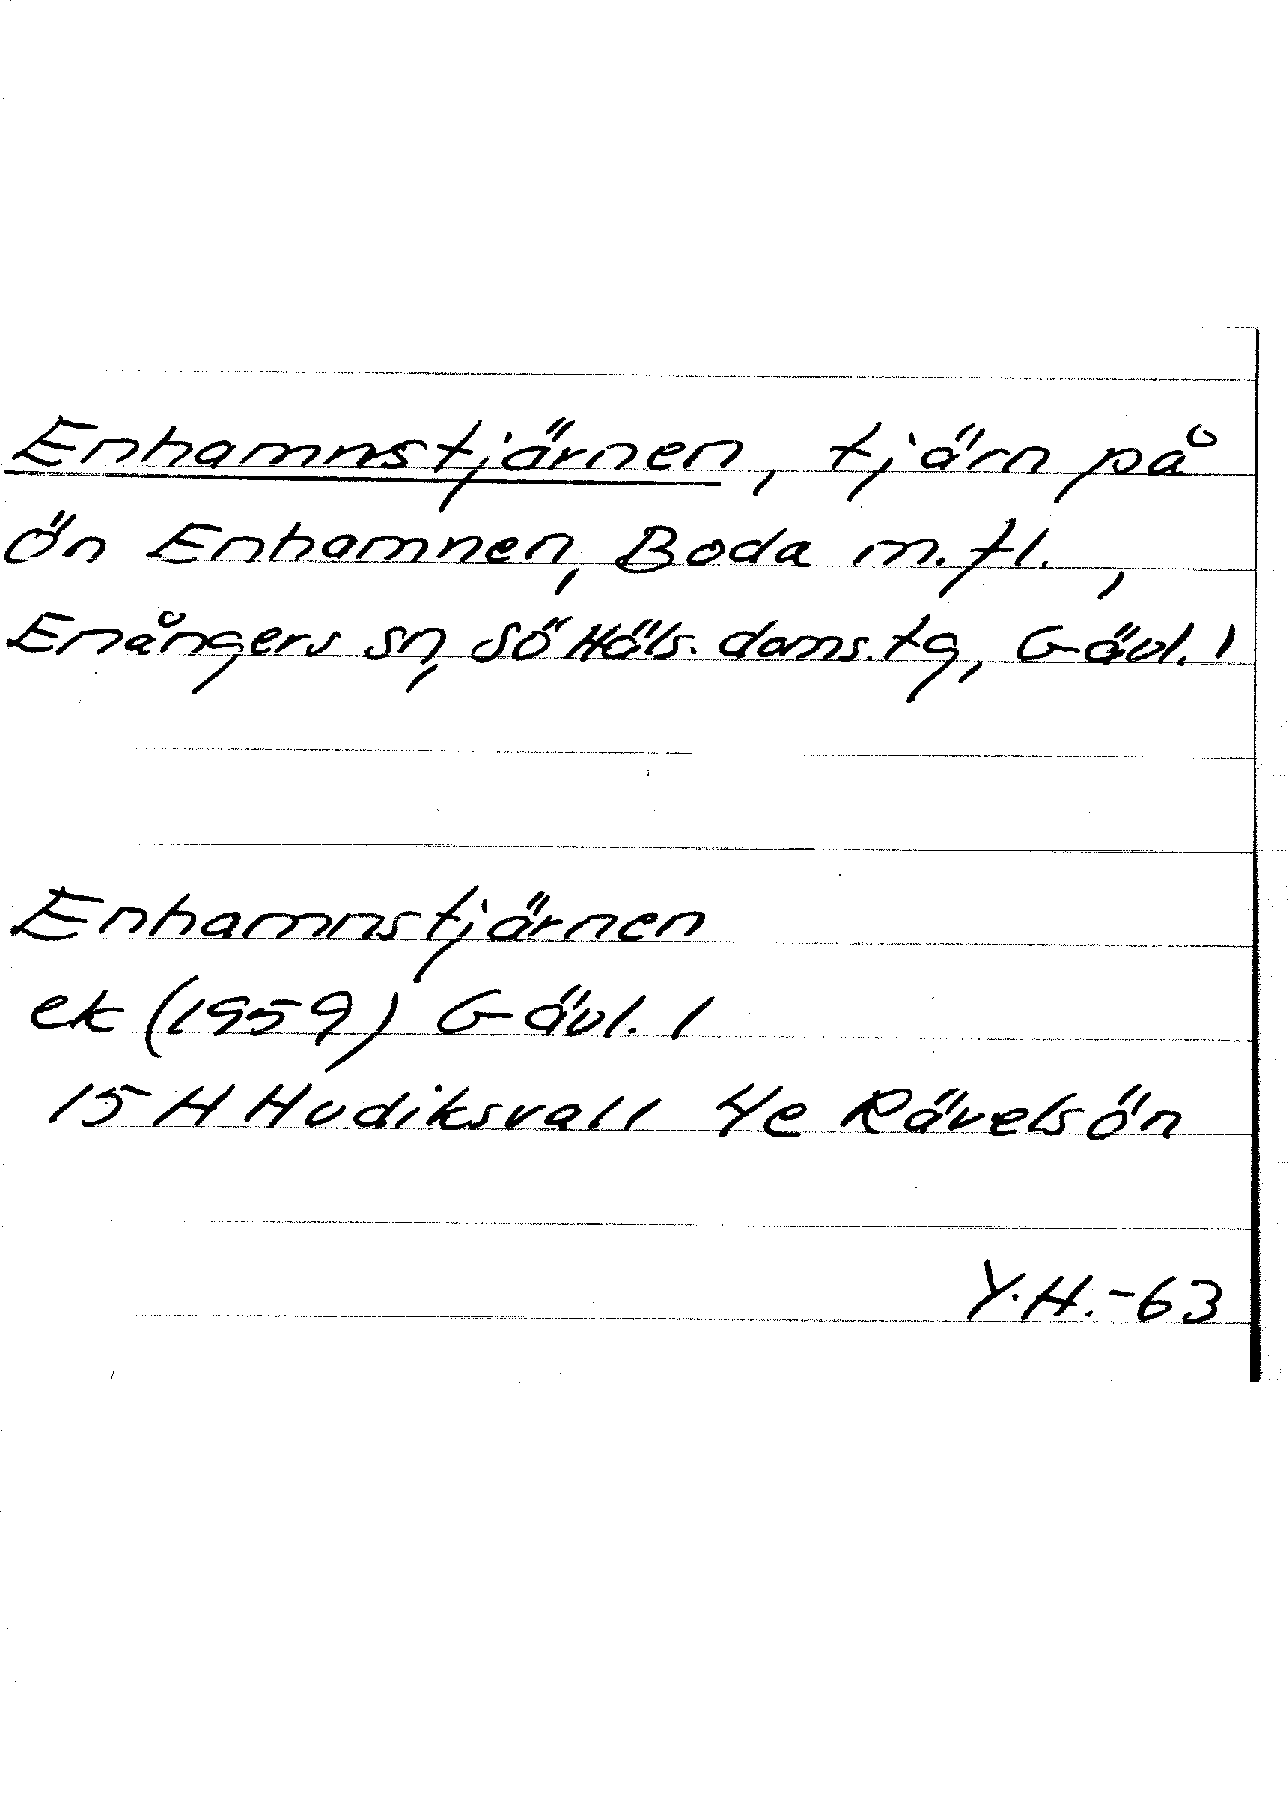 Enhamnstjärnen, tjärn på
ön Enhamnen, Boda m.fl.,
Enångers sn, Sö Häls. doms.tg, Gävl. l
Enhamnstjärnen
ek (1959) Gävl. l
15 H Hudiksvall 4e Rävelsön
Y.H.-63